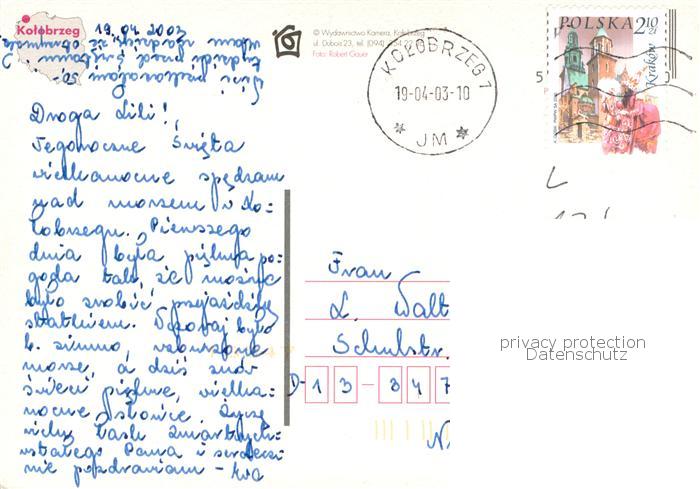 Kołobrzeg
19.04.2003
© Wydawnictwo Kamera, Kołobrzeg
ul. Dubois 23, tel. (094)
Foto: Robert Gauer
KOŁOBRZEG 1
19-04-03-10
JM
POLSKA 2,10 zł
Kraków
Droga Lili!,
Tegoroczne Święta
wielkanocne spędzam
nad morzem w Ko=
łobrzegu. Pierwszego
dnia była piękna po=
goda tak, że można
było zrobić przejażdżkę
statkiem. Wczoraj było
b. zimno, wzburzone
morze, a dziś znów
świeci piękne, wielka=
nocne słońce. Życzę
wielu łask Zmartwych=
wstałego Pana i serdecz=
nie pozdrawiam - Ewa
Frau
L. Walt
Schulstr.
D-13-347
privacy protection
Datenschutz